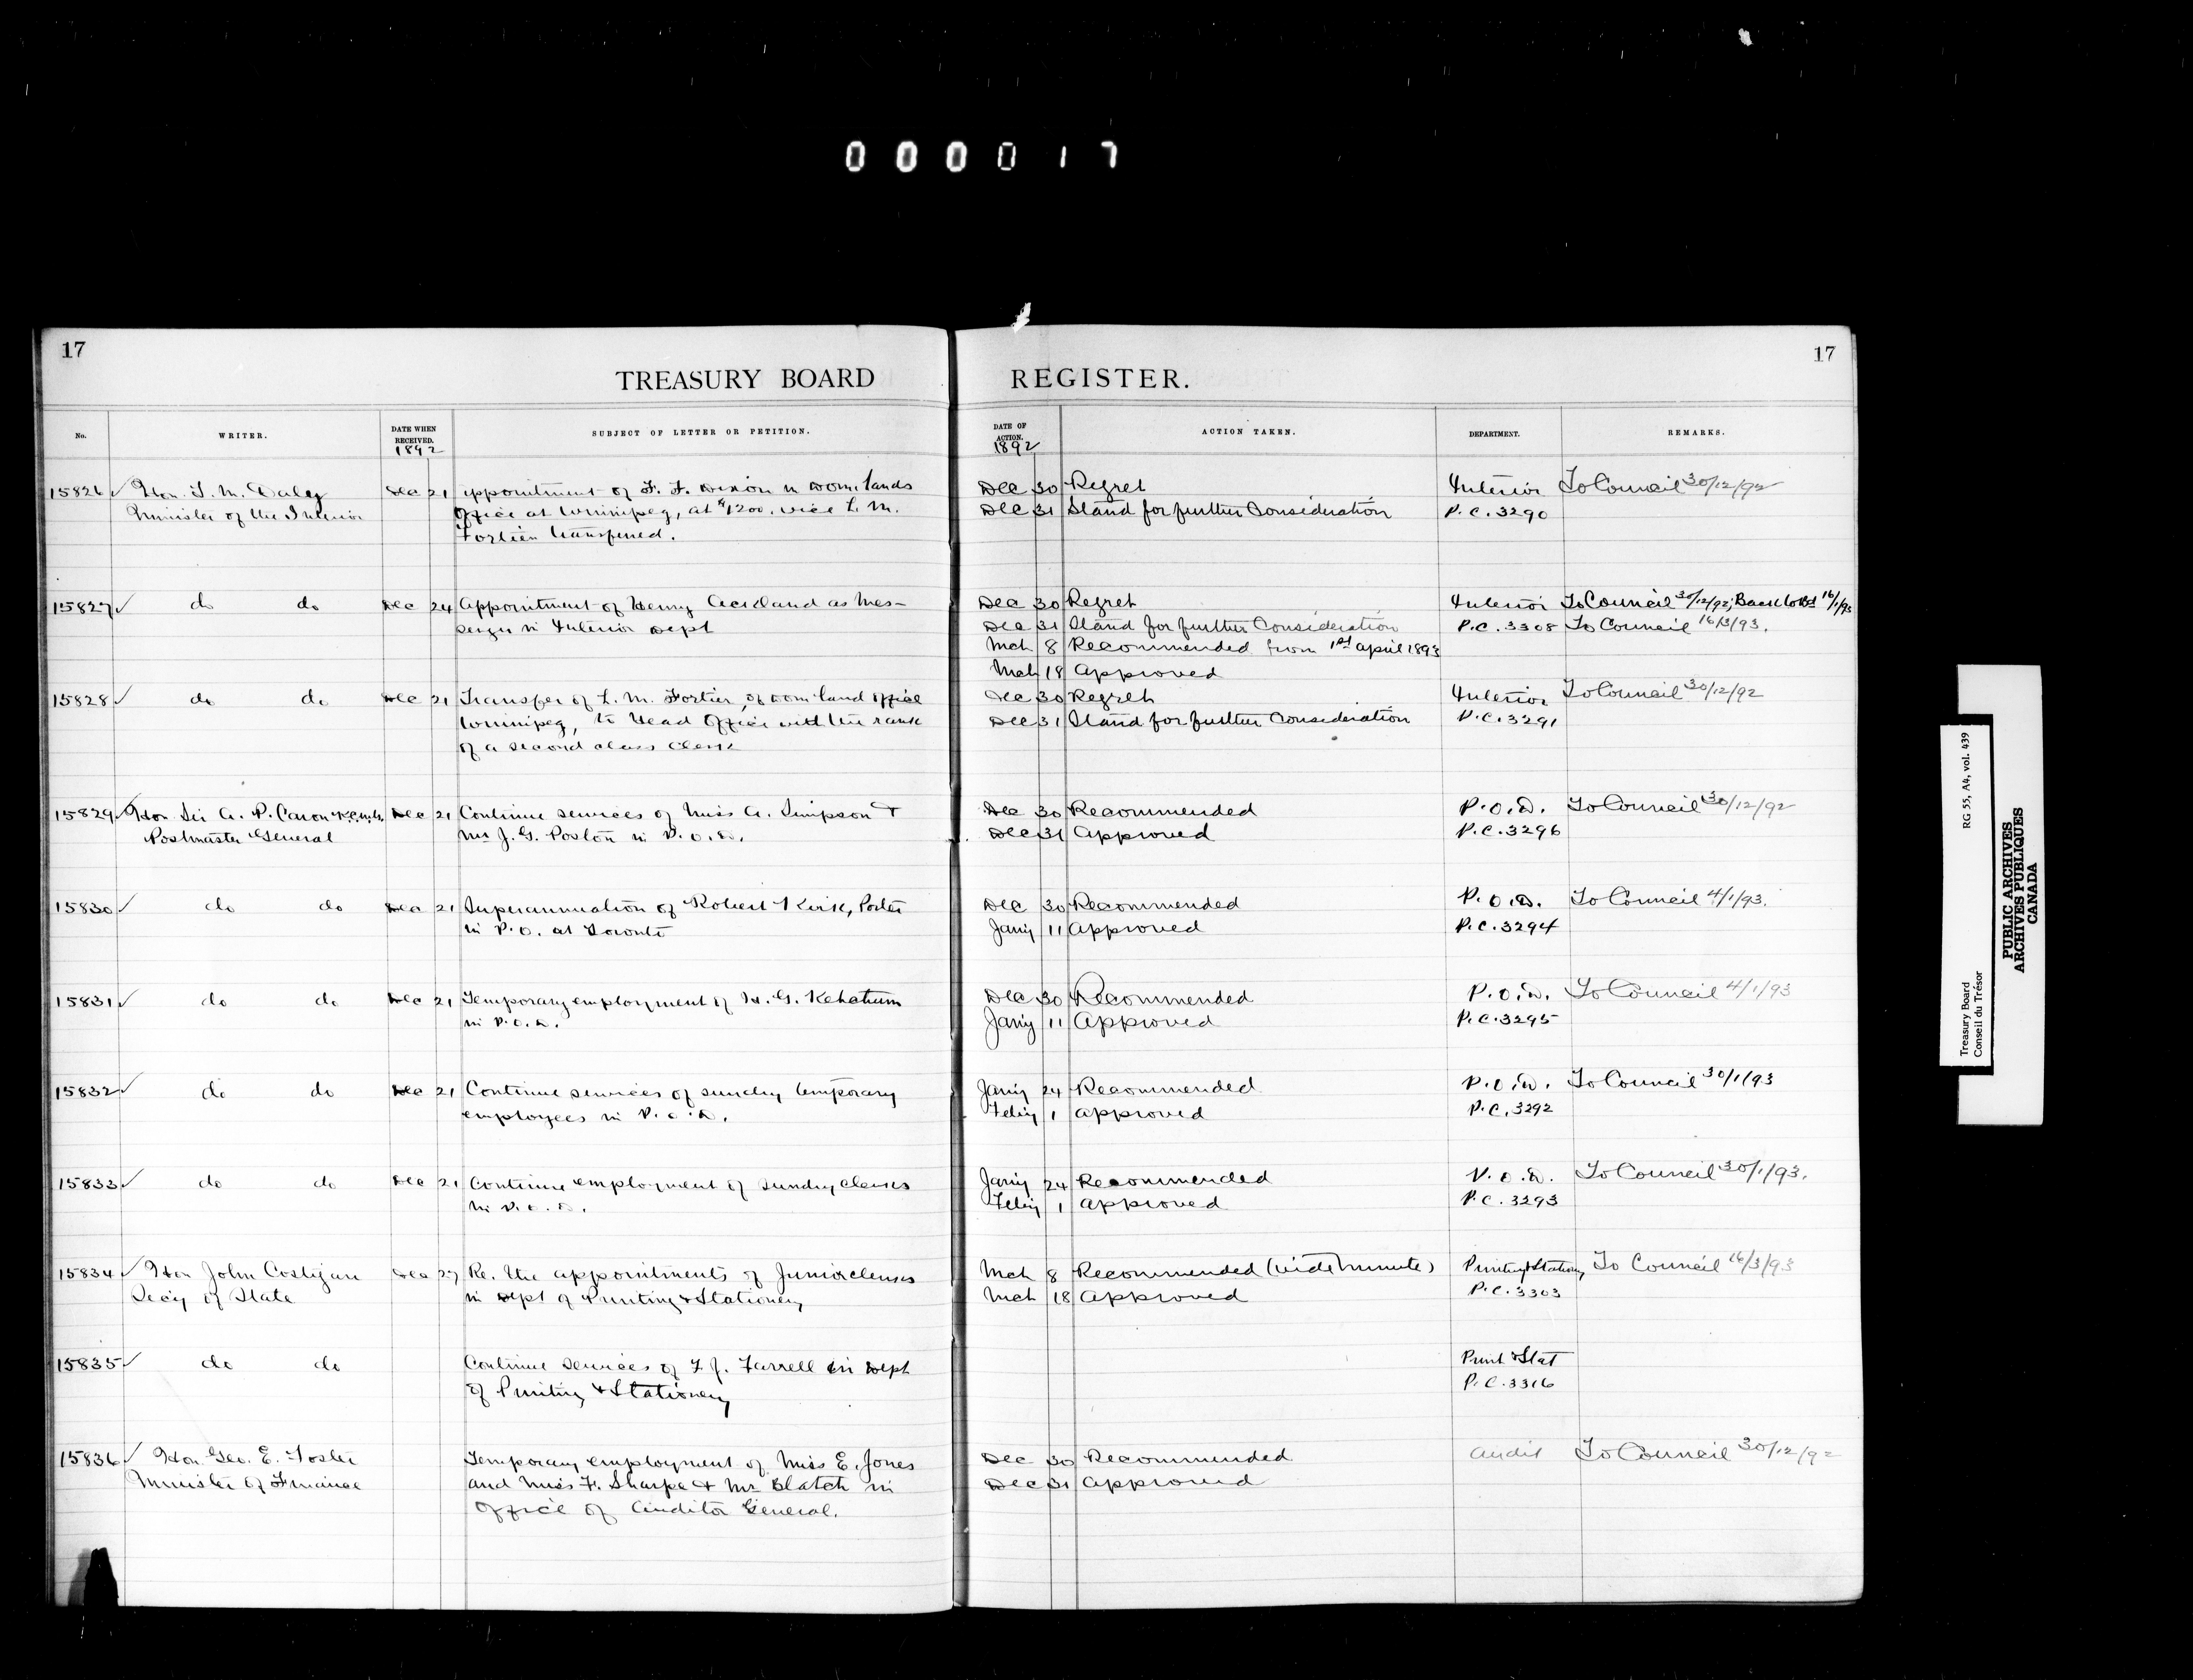 000017
17
17
TREASURY BOARD REGISTER.
No. WRITER. DATE WHEN RECEIVED. SUBJECT OF LETTER OR PETITION. DATE OF ACTION. ACTION TAKEN. DEPARTMENT. REMARKS.
1892 1892
15826 Hon. T. M. Daley Dec 21 appointment of F. F. Dixon in Dom. lands Dec 30 Regret Interior To Council 30/12/92
Minister of the Interior Office at Winnipeg, at $1200. vice L. M. Dec 31 Stand for further Consideration P.C. 3290
Fortier transferred.
15827 do do Dec 24 Appointment of Henry Acidland as Mes- Dec 30 Regret Interior To Council 30/12/92; Back to Bd 16/1/93
senger in Interior Dept Dec 31 Stand for further Consideration P.C. 3308 To Council 16/3/93.
Mch 8 Recommended from 1st april 1893
Mch 18 Approved
15828 do do Dec 21 Transfer of L. M. Fortier, of Dom land office Dec 30 Regret Interior To Council 30/12/92
Winnipeg, to Head Office with the rank Dec 31 Stand for further Consideration P.C. 3291
of a second class clerk
15829 Hon Sir A. P. Caron K.C.M.G. Dec 21 Continue services of Miss A. Simpson & Dec 30 Recommended P.O.D. To Council 30/12/92
Postmaster General Mr J. G. Poston in P.O.D. Dec 31 Approved P.C. 3296
15830 do do Dec 21 Superannuation of Robert Kirk, Porter Dec 30 Recommended P.O.D. To Council 4/1/93.
in P.O. at Toronto Jany 11 Approved P.C. 3294
15831 do do Dec 21 Temporary employment of H. G. Ketchum Dec 30 Recommended P.O.D. To Council 4/1/93
in P.O.D. Jany 11 Approved P.C. 3295
15832 do do Dec 21 Continue services of sundry temporary Jany 24 Recommended P.O.D. To Council 30/1/93
employees in P.O.D. Feby 1 approved P.C. 3292
15833 do do Dec 21 Continue employment of sundry clerks Jany 24 Recommended P.O.D. To Council 30/1/93.
in P.O.D. Feby 1 approved P.C. 3293
15834 Hon John Costigan Dec 27 Re. the appointments of Junior clerks Mch 8 Recommended (vide minute) Printing & Stationy To Council 16/3/93
Secy of State in Dept of Printing & Stationery Mch 18 Approved P.C. 3303
15835 do do Continue services of F. J. Farrell in Dept Print & Stat
of Printing & Stationery P.C. 3316
15836 Hon. Geo. E. Foster Temporary employment of Miss E. Jones Dec 30 Recommended Audit To Council 30/12/92
Minister of Finance and Miss F. Sharpe & Mr Blatch in Dec 31 Approved
Office of Auditor General.
Treasury Board RG 55, A4, vol. 439
Conseil du Trésor
PUBLIC ARCHIVES
ARCHIVES PUBLIQUES
CANADA